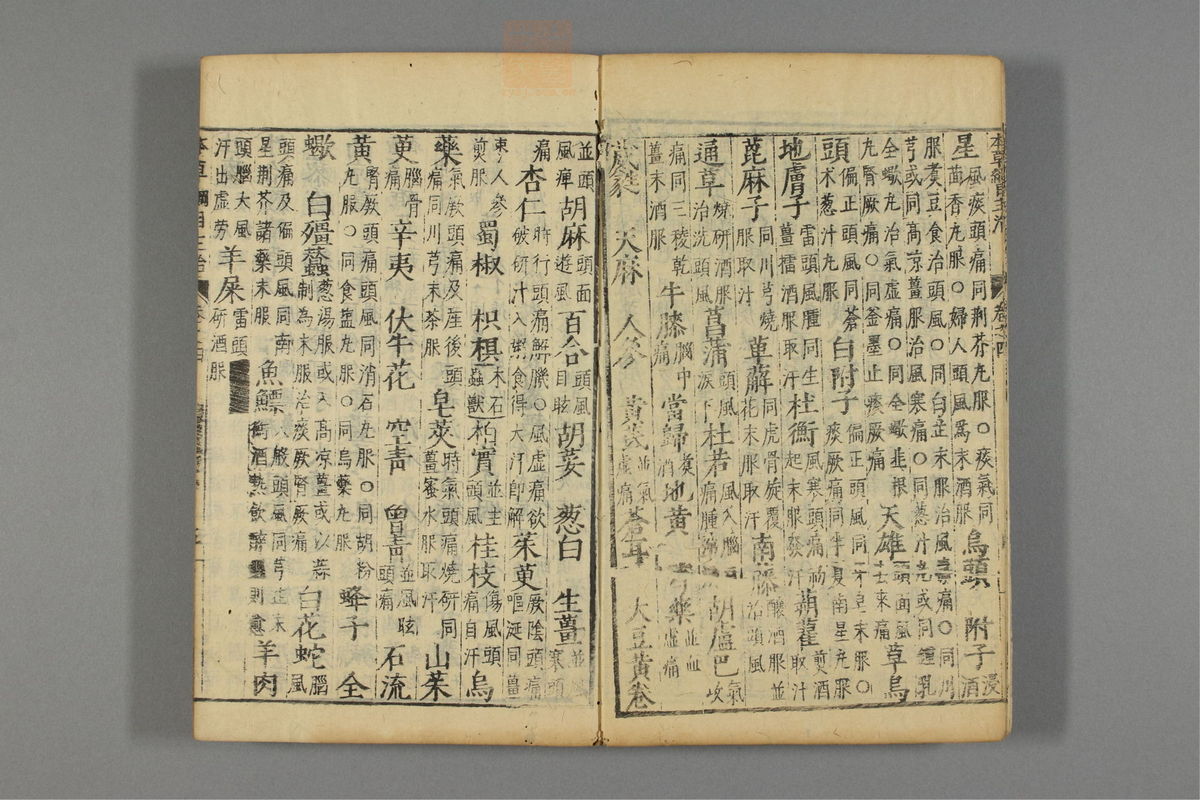 本草綱目主治 卷之四
星 風痰頭痛同荆芥丸服○痰氣同茴香丸服○婦人頭風爲末酒服 烏頭 附子 浸酒
服煑豆食治頭風○同白芷末服治風毒痛○同川芎或同高凉薑服治風寒痛○同葱汁丸或同鍾乳
全蠍丸治氣虛痛○同全蠍韭根丸腎厥痛○同釜墨止痰厥痛 天雄 頭面風去來痛 草烏
頭 偏正頭風同蒼术葱汁丸服 白附子 偏正頭風同牙皂末服○痰厥痛同半夏南星丸服
地膚子 雷頭風腫同生薑擂酒服取汗 杜衡 風寒頭痛初起末服發汗 蒴藋 煎酒取汁
蓖麻子 同川芎燒服取汁 萆薢 同虎骨旋覆花末服取汗 南藤 釀酒服並治頭風
通草 燒研酒服治洗頭風 菖蒲 頭風淚下 杜若 風入腦痛腫 胡盧巴 氣攻
痛同三稜乾薑末酒服 牛膝 腦中痛 當歸 煑酒 地黃 芍藥 並血虛痛
葳蕤 天麻 人參 黃芪 並氣虛痛 蒼耳 大豆黃卷
並頭風痺 胡麻 頭面遊風 百合 頭風目眩 胡荽 葱白 生薑 並風寒頭
痛 杏仁 時行頭痛解肌○風虛痛欲破研汁入粥食得大汗即解 茱萸 厥陰頭痛嘔涎同薑
棗人參煎服 蜀椒 枳椇 木石蟲獸 柏實 並主頭風 桂枝 傷風頭痛自汗 烏
藥 氣厥頭痛及產後頭痛同川芎末茶服 皂莢 時氣頭痛燒研同薑蜜水服取汗 山茱
萸 腦骨痛 辛夷 伏牛花 空青 曾青 並風眩頭痛 石流
黃 腎厥頭痛頭風同消石丸服○同胡粉丸服○同食鹽丸服○同烏藥丸服 蜂子 全
蠍 白殭蠶 葱湯服或入高凉薑或以蒜制為末服治痰厥腎厥痛 白花蛇 腦風
頭痛及偏頭風同南星荆芥諸藥末服 魚鰾 八般頭風同芎芷末衝酒熱飲醉則愈 羊肉
頭腦大風汗出虛勞 羊屎 雷頭風研酒服
本草綱目主治 卷之四